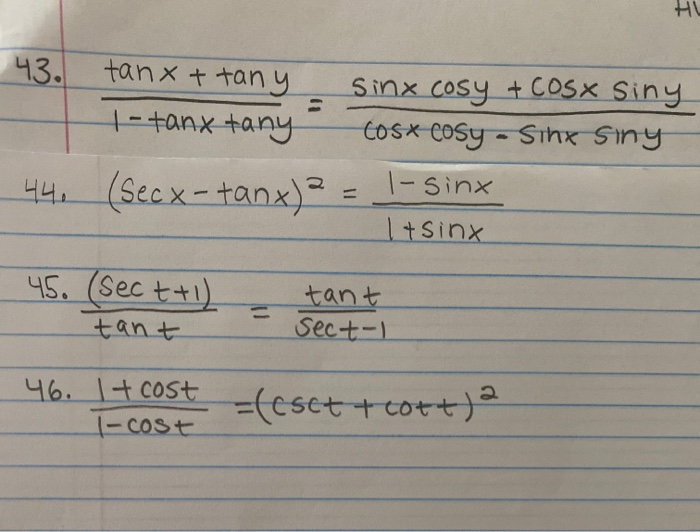 HW
43. tanx + tany / 1 - tanx tany = sinx cosy + cosx siny / cosx cosy - sinx siny
44. (secx - tanx)² = 1 - sinx / 1 + sinx
45. (sec t+1) / tan t = tan t / sec t - 1
46. 1 + cost / 1 - cost = (csct + cott)²